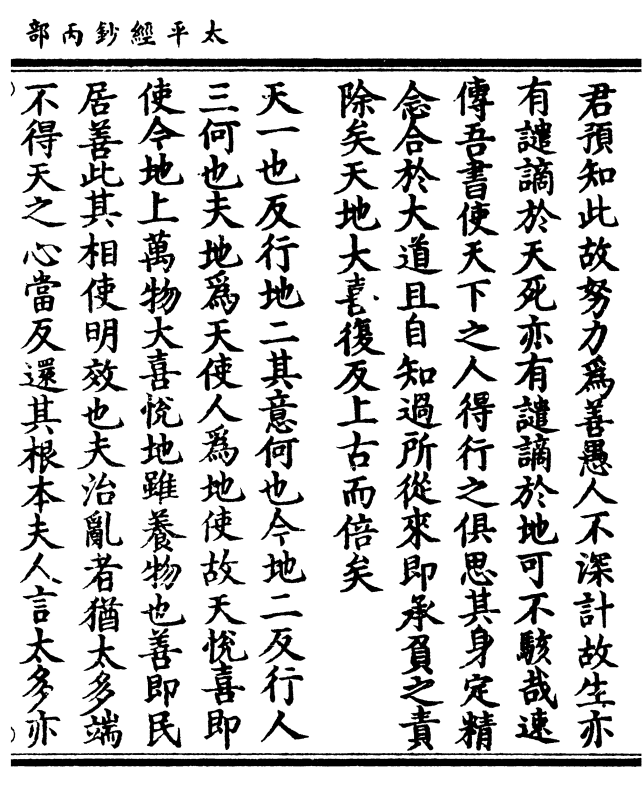 太平經鈔丙部
君預知此故努力爲善愚人不深計故生亦
有譴謫於天死亦有譴謫於地可不駭哉速
傳吾書使天下之人得行之俱思其身定精
念合於大道且自知過所從來即承負之責
除矣天地大喜復反上古而倍矣
天一也反行地二其意何也今地二反行人
三何也夫地爲天使人爲地使故天悅喜即
使今地上萬物大喜悅地雖養物也善即民
居善此其相使明效也夫治亂者猶太多端
不得天之心當反還其根本夫人言太多亦